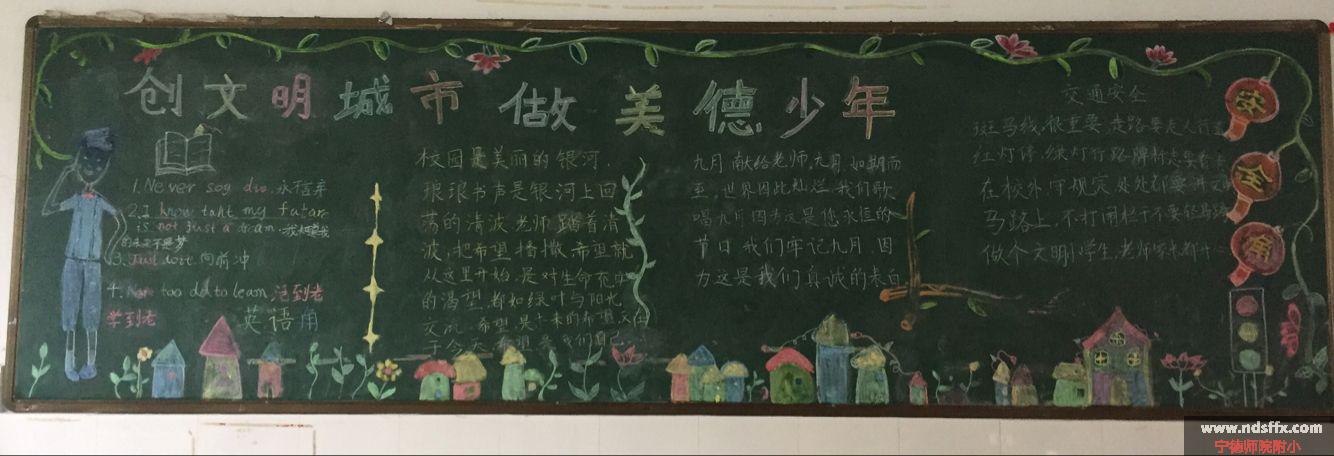 创文明城市 做美德少年
1. Never say die. 永不言弃
2. I know taht my futar
is not just a dream. 我知道我
的未来不是梦
3. Just do it. 向前冲
4. too old to learn. 活到老
学到老
英语角
校园是美丽的银河,
琅琅书声是银河上回
荡的清波,老师踏着清
波,把希望播撒,希望就
从这里开始,是对生命充实
的渴望,都如绿叶与阳光
交流,希望是十未的希望
于今天 希望是我们自己
九月献给老师,九月,如期而
至,世界因此灿烂,我们歌
唱九月因为这是您永恒的
节日,我们牢记九月,因
为这是我们真诚的表白
交通安全
斑马线,很重要,走路要走人行
红灯停,绿灯行,路牌标志要看
在校外,守规定,处处都要讲文
马路上,不打闹,栏干不要
做个文明小学生,老师家长都
安
全
角
www.ndsffx.com
宁德师院附小